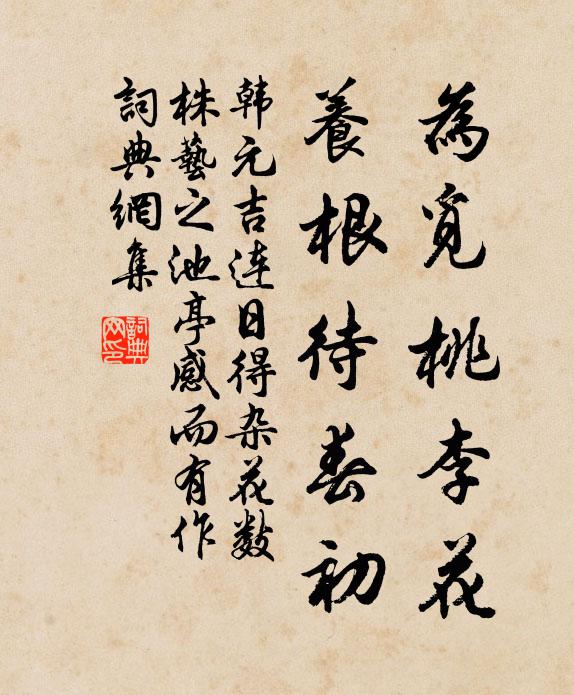 為覓桃李花
養根待春初
韩元吉連日得杂花数
株藝之池亭感而有作
詞典網集
詞典網印